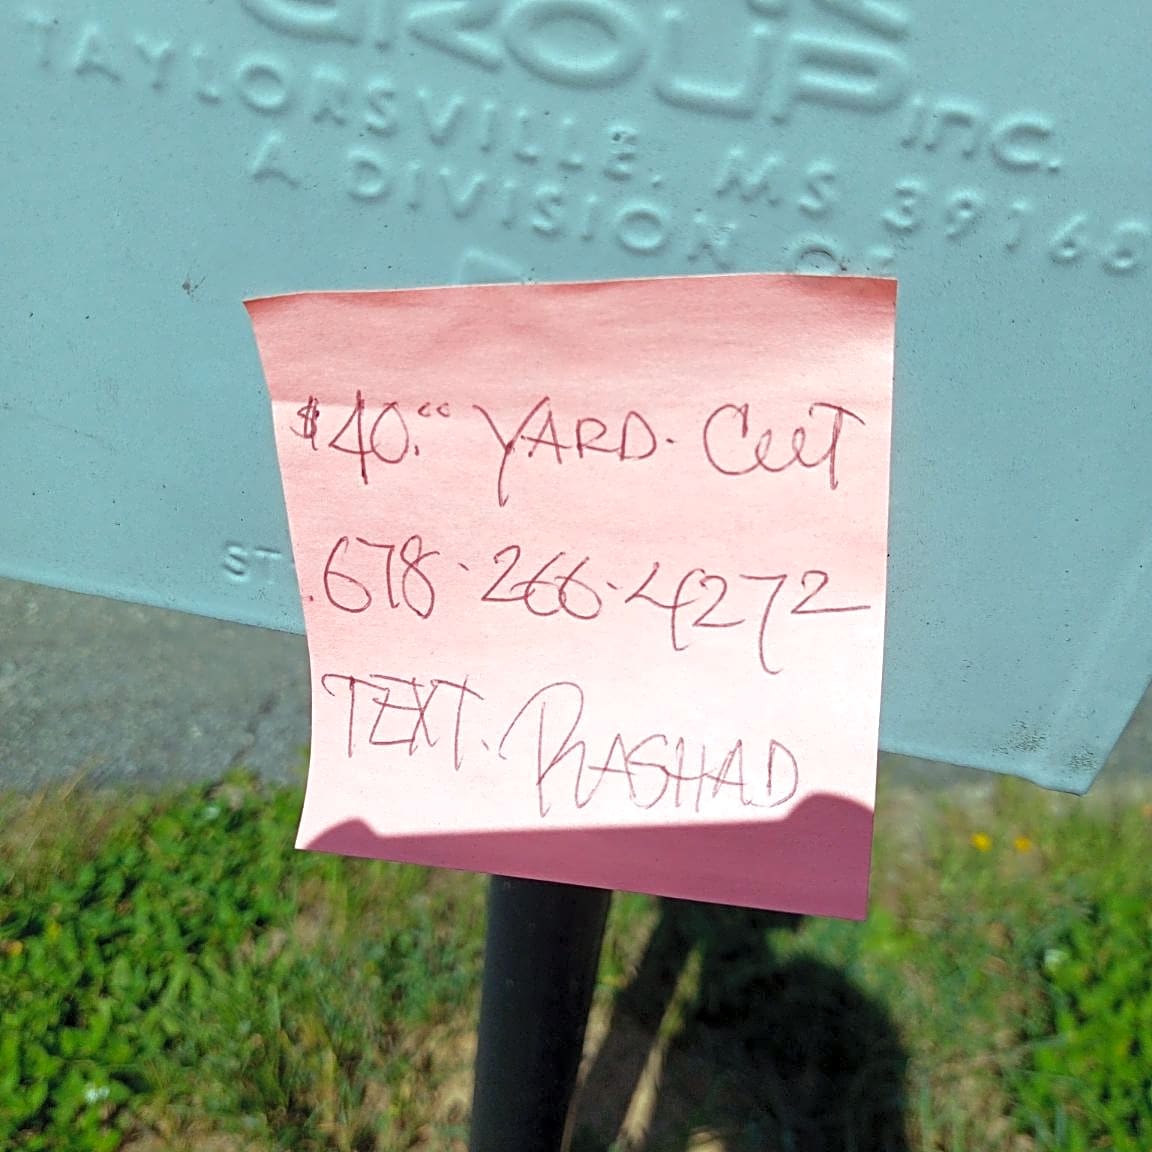 GROUP INC.
TAYLORSVILLE, MS 39168
A DIVISION OF
$40.00 YARD. CUT
678-266-4272
TEXT. RASHAD
ST